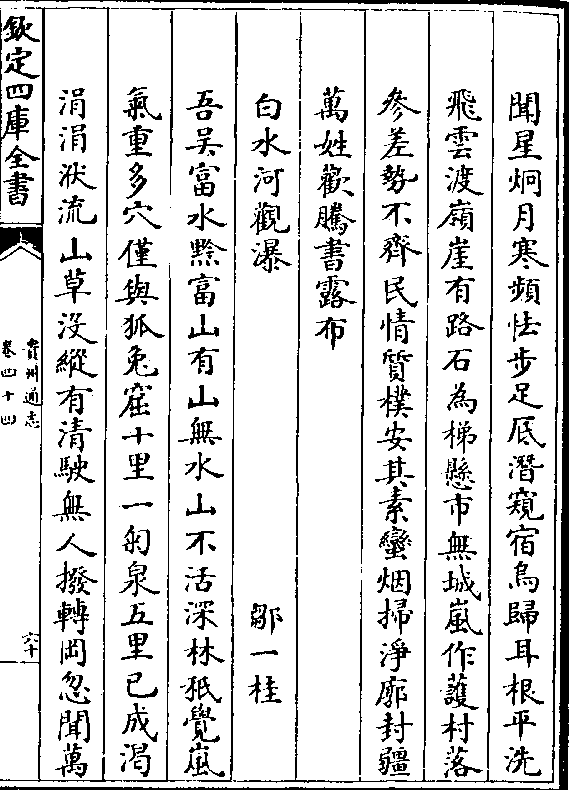 聞星炯月寒頻怯步足底潛窺宿鳥歸耳根平洗
飛雲渡嶺崖有路石為梯懸市無城嵐作護村落
參差勢不齊民情質樸安其素蠻烟掃淨廓封疆
萬姓歡騰書露布
白水河觀瀑 鄒一桂
吾吳富水黔富山有山無水山不活深林秪覺嵐
氣重多穴僅與狐兔窟十里一匊泉五里已成渴
涓涓洑流山草沒縱有清駛無人撥轉岡忽聞萬
欽定四庫全書
貴州通志
卷四十四
六十